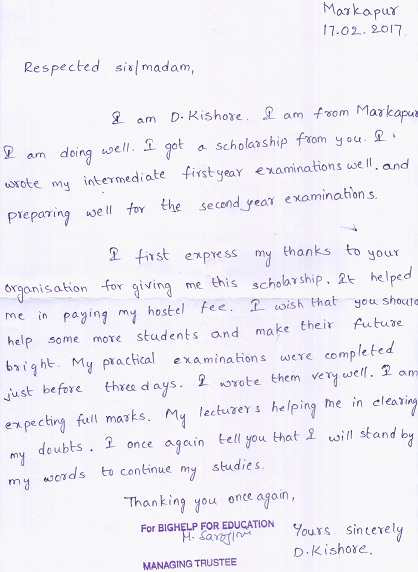 Markapur
17.02.2017.
Respected sir/madam,
I am D.Kishore. I am from Markapur
I am doing well. I got a scholarship from you. I
wrote my intermediate first year examinations well. and
preparing well for the second year examinations.
I first express my thanks to your
organisation for giving me this scholarship. It helped
me in paying my hostel fee. I wish that you should
help some more students and make their future
bright. My practical examinations were completed
just before three days. I wrote them very well. I am
expecting full marks. My lecturers helping me in clearing
my doubts. I once again tell you that I will stand by
my words to continue my studies.
Thanking you once again,
For BIGHELP FOR EDUCATION
M. Sarojini
Yours sincerely
D.Kishore.
MANAGING TRUSTEE